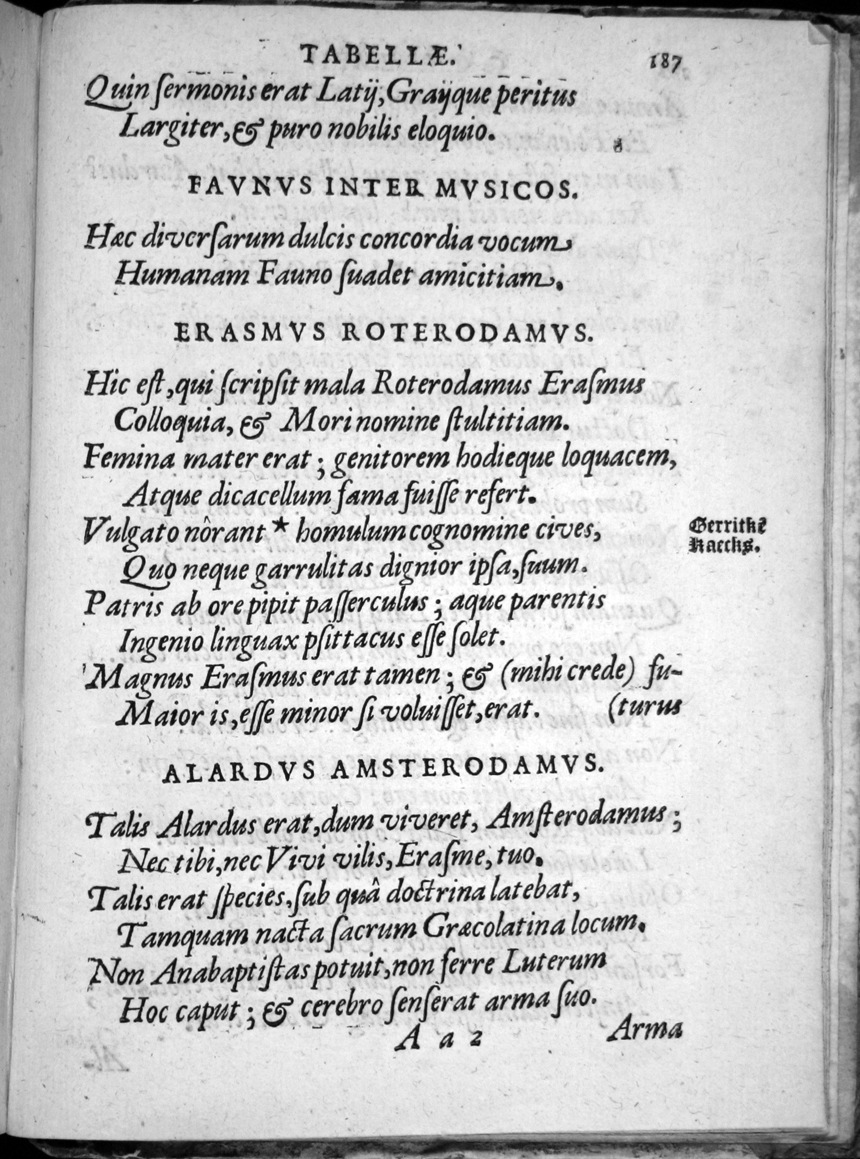 TABELLÆ. 187
Quin ſermonis erat Latij, Graijque peritus
Largiter, & puro nobilis eloquio.
FAVNVS INTER MVSICOS.
Hæc diverſarum dulcis concordia vocum
Humanam Fauno ſuadet amicitiam.
ERASMVS ROTERODAMVS.
Hic eſt, qui ſcripſit mala Roterodamus Eraſmus
Colloquia, & Mori nomine ſtultitiam.
Femina mater erat; genitorem hodieque loquacem,
Atque dicacellum fama fuiſſe refert.
Vulgato nôrant * homulum cognomine cives,
Gerrithē
Kaecks.
Quo neque garrulitas dignior ipſa, ſuum.
Patris ab ore pipit paſſerculus; aque parentis
Ingenio linguax pſittacus eſſe ſolet.
Magnus Eraſmus erat tamen; & (mihi crede) fu-
Maior is, eſſe minor ſi voluiſſet, erat. (turus
ALARDVS AMSTERODAMVS.
Talis Alardus erat, dum viveret, Amſterodamus;
Nec tibi, nec Vivi vilis, Eraſme, tuo.
Talis erat ſpecies, ſub quâ doctrina latebat,
Tamquam nacta ſacrum Græcolatina locum.
Non Anabaptiſtas potuit, non ferre Luterum
Hoc caput; & cerebro ſenſerat arma ſuo.
A a 2 Arma